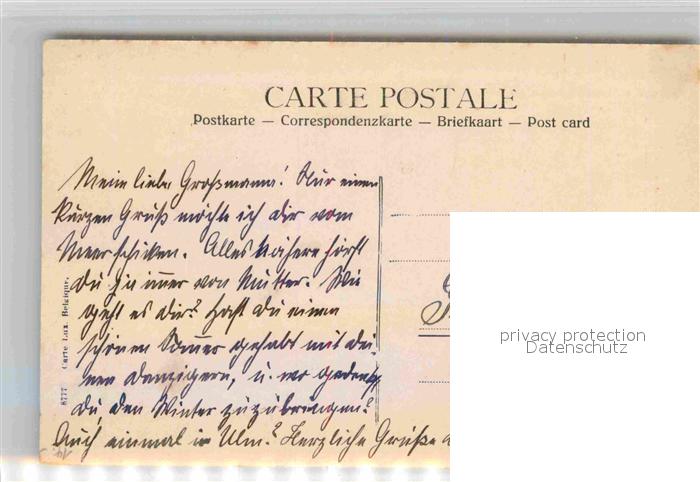 CARTE POSTALE
Postkarte — Correspondenzkarte — Briefkaart — Post card
Meine liebe Großmama! Nur einen
kurzen Gruß möchte ich dir vom
Meer schicken. Alles nähere hörst
du ja immer von Mutter. Wie
geht es dir? Hast du einen
schönen Sommer gehabt mit dei-
nen Danzigern, u. wo gedenkst
du den Winter zuzubringen?
Auch einmal in Ulm? Herzliche Grüße
8777 Carte Lux. Belgique.
privacy protection
Datenschutz